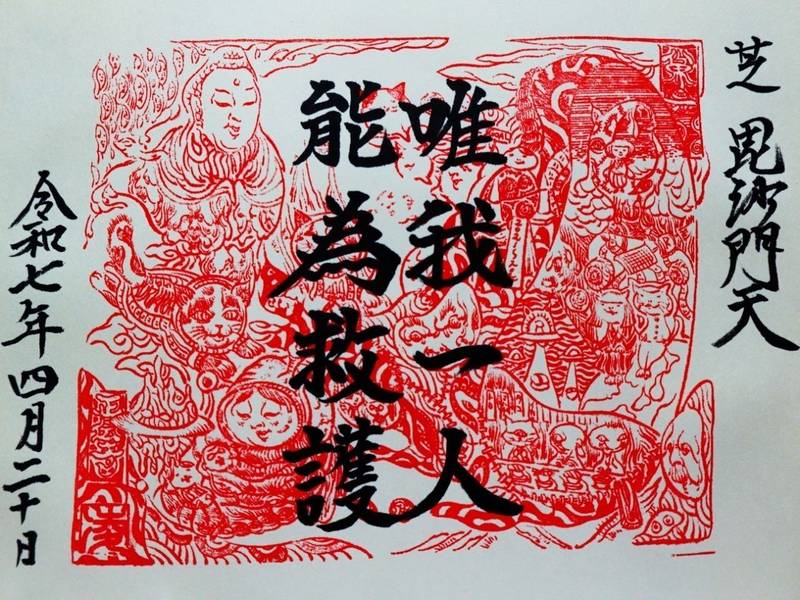 芝 毘沙門天
唯我一人
能為救護
令和七年四月二十日